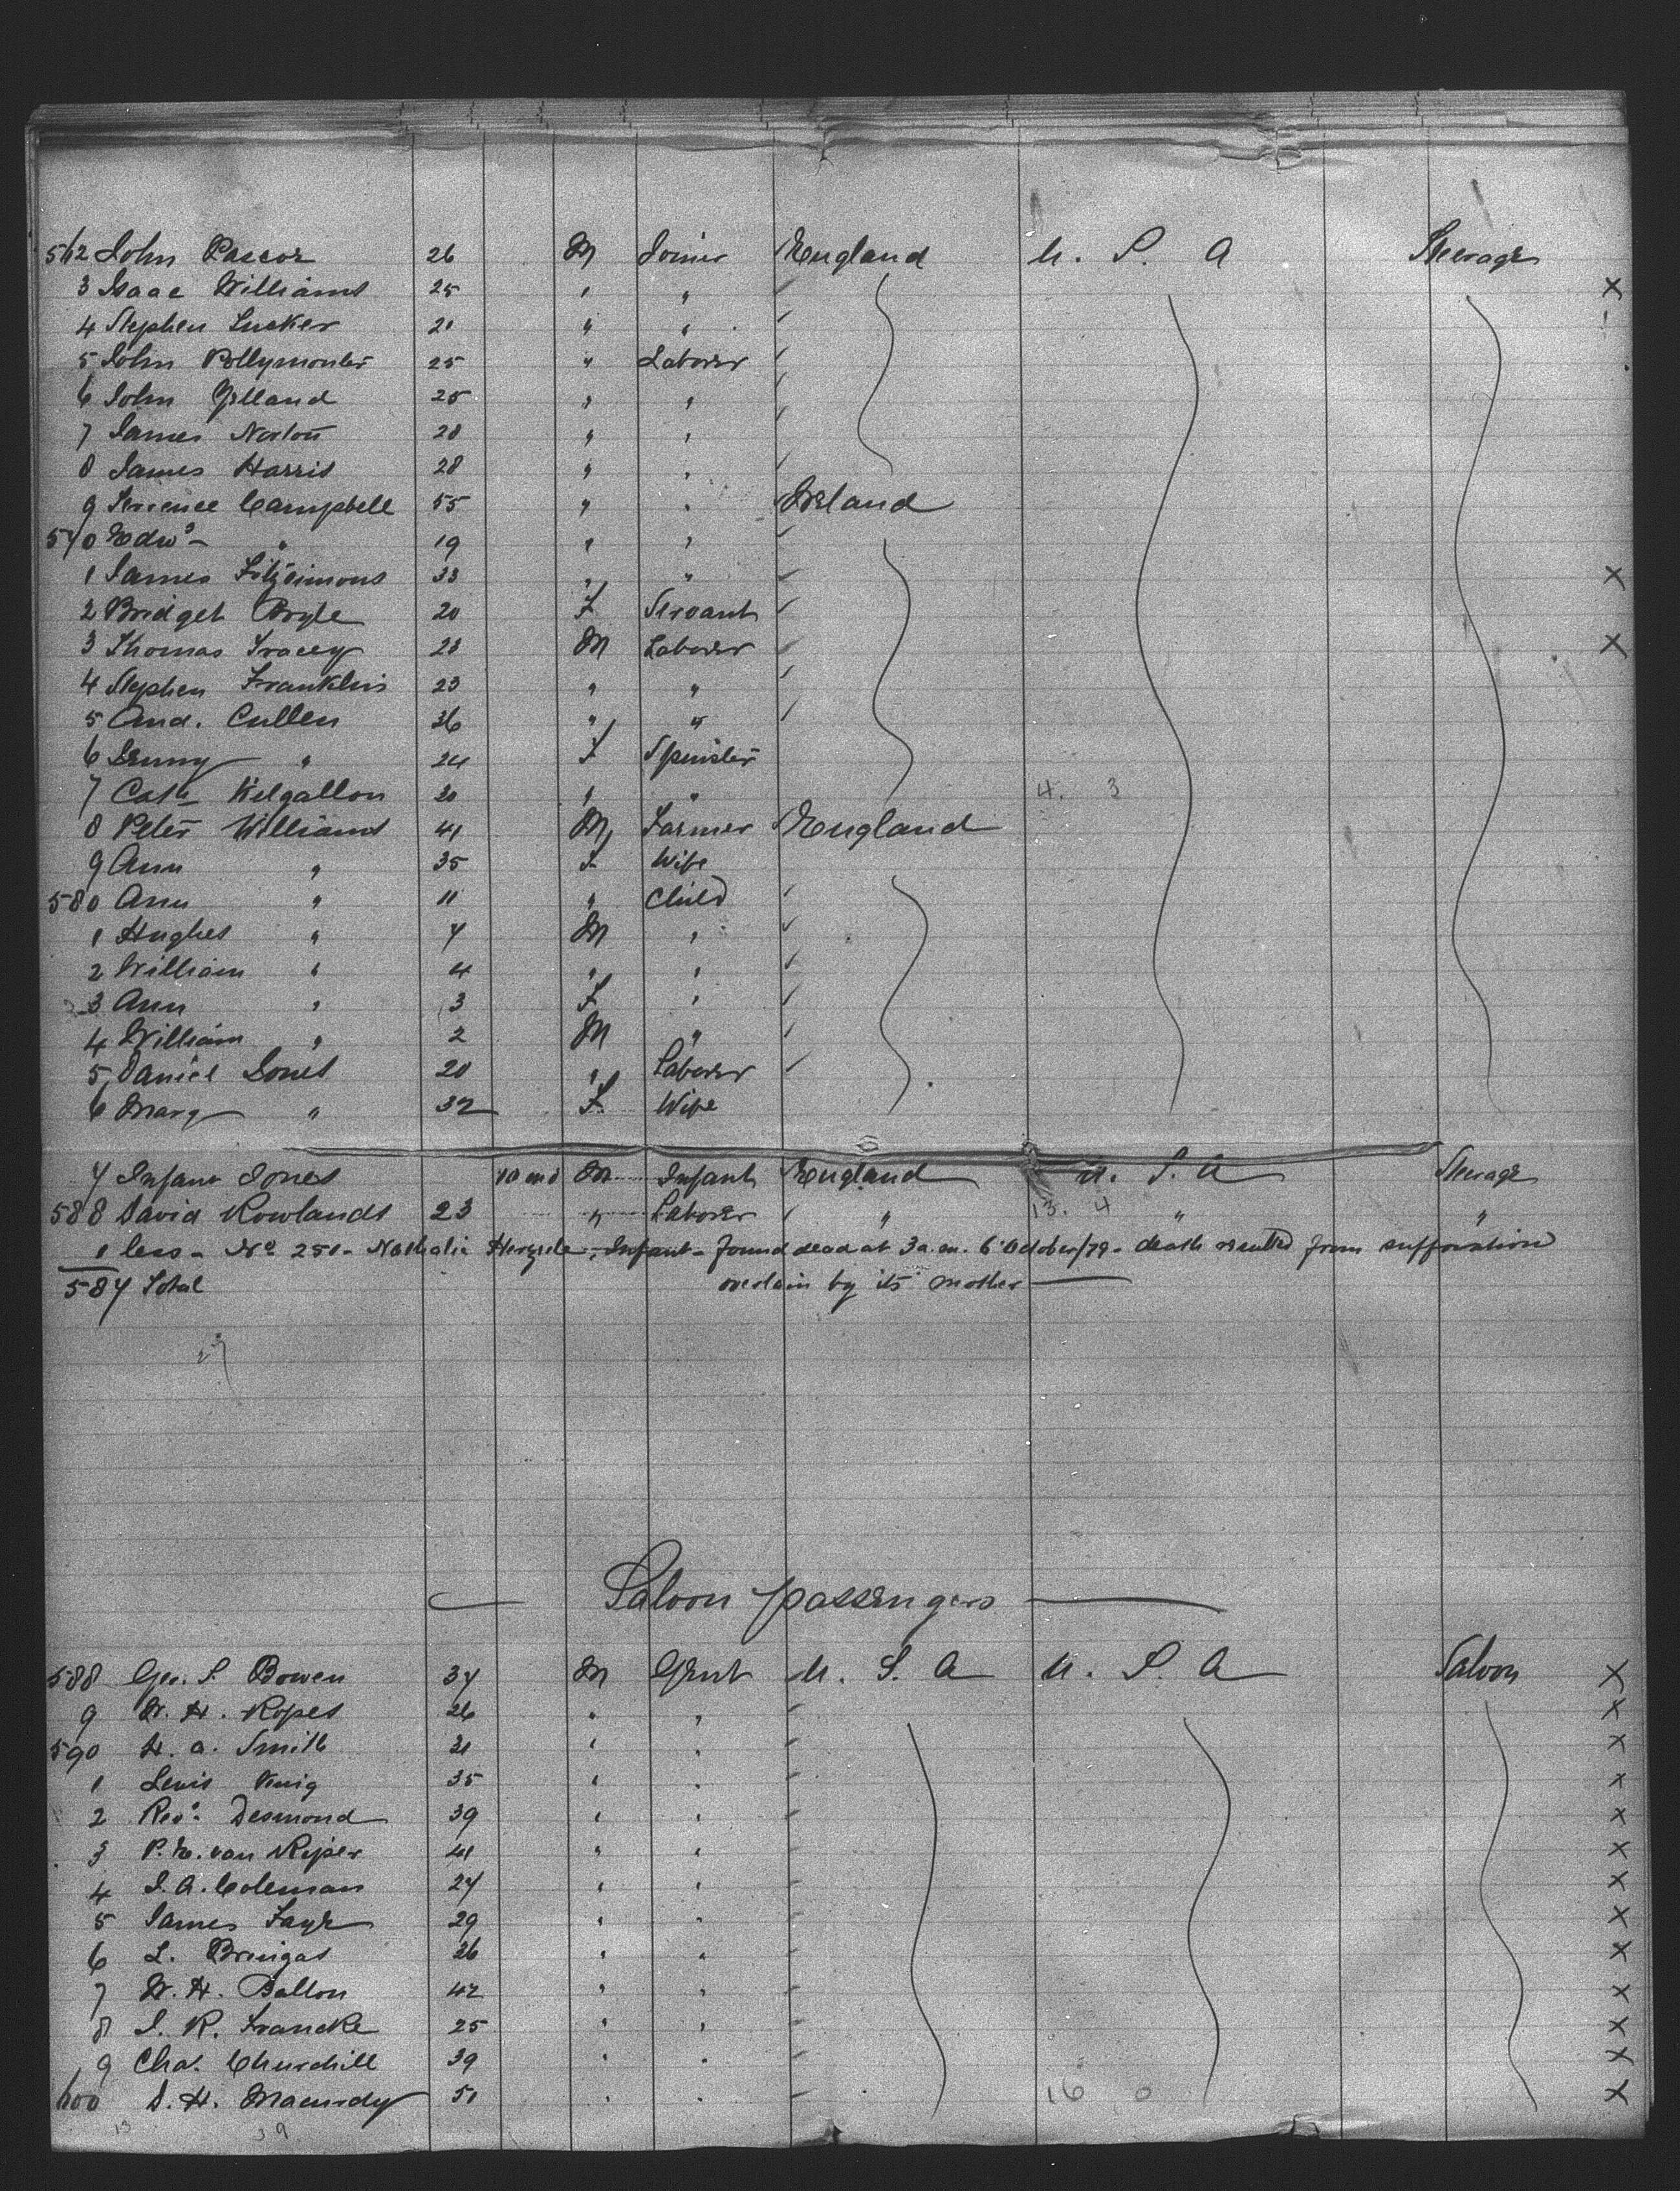 562 John Pascoe 26 M Joiner England U. S. A Steerage
3 Isaac Williams 25 " " X
4 Stephen Tucker 21 " "
5 John Pollymounter 25 " Laborer
6 John Yelland 25 " "
7 James Norton 28 " "
8 James Harris 28 " "
9 Terrence Campbell 55 " " Ireland
570 Edwd " 19 " "
1 James Fitzsimons 33 " " X
2 Bridget Boyle 20 F Servant
3 Thomas Tracey 23 M Laborer X
4 Stephen Franklin 23 " "
5 And. Cullen 36 " "
6 Jenny " 24 F Spinster
7 Cath Kilgallon 20 " " 4. 3
8 Peter Williams 41 M Farmer England
9 Ann " 35 F Wife
580 Ann " 11 " Child
1 Hughes " 7 M "
2 William " 4 " "
3 Ann " 3 F "
4 William " 2 M "
5 Daniel Jones 20 " Laborer
6 Mary " 32 F Wife
7 Infant Jones 10 mos M Infant England U. S. A Steerage
588 David Rowlands 23 " Laborer " 13. 4 " "
1 less - No 251 - Nathalie Infant - found dead at 3 a.m. 6 October/79 - death resulted from suffocation
587 Total overlain by its mother
Saloon passengers
588 Geo. S. Bowen 37 M Gent U. S. A U. S. A Saloon X
9 W. H. Ropes 26 " " X
590 H. A. Smith 31 " " X
1 Lewis 35 " " X
2 Revd Desmond 39 " " X
3 P. H. van Riper 41 " " X
4 J. A. Coleman 27 " " X
5 James Faye 29 " " X
6 L. 26 " " X
7 W. H. Ballou 42 " " X
8 J. R. Francke 25 " " X
9 Chas. Churchill 39 " " X
600 D. H. 51 " " 16 0 X
13 39